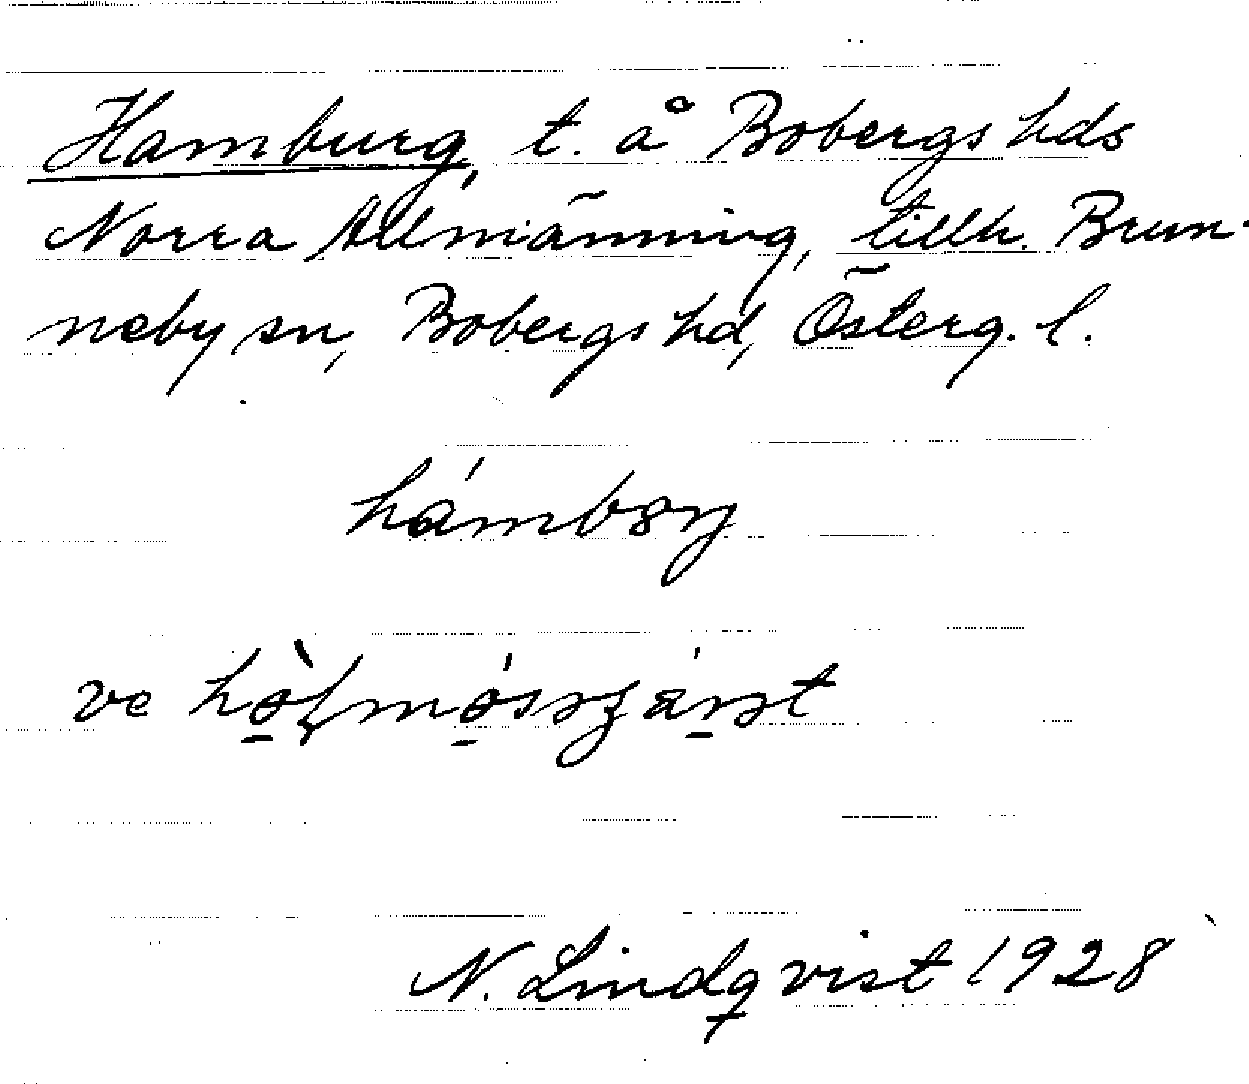 Hamburg, t. å Bobergs hds
Norra Allmänning, tillh. Brun-
neby sn, Bobergs hd, Österg. l.
ve
N. Lindqvist 1928